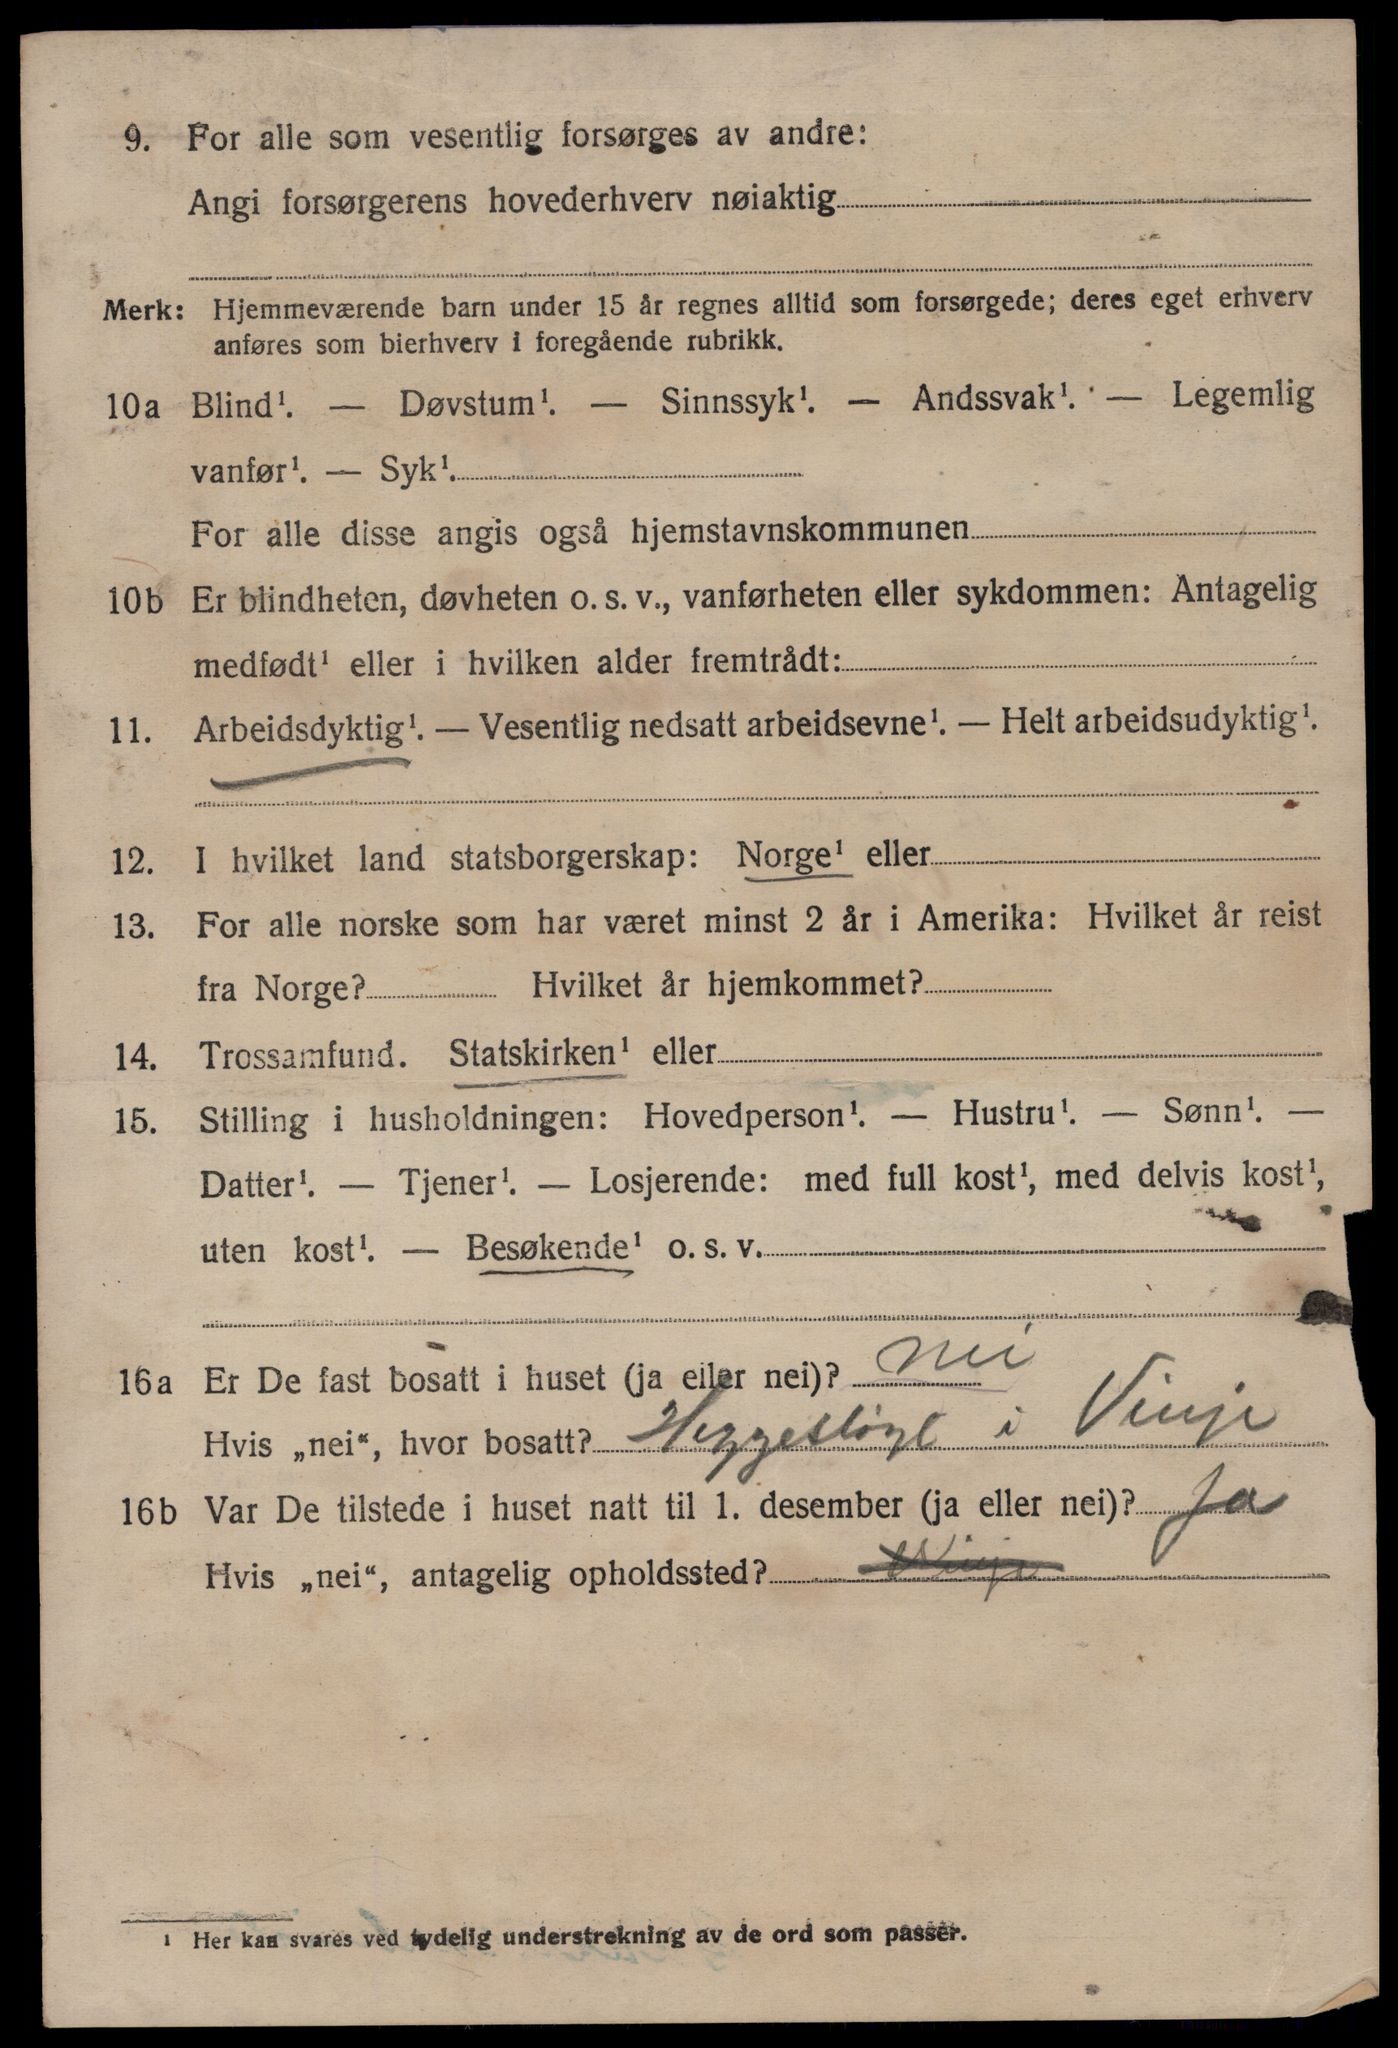 9. For alle som vesentlig forsørges av andre:
Angi forsørgerens hovederhverv nøiaktig
Merk: Hjemmeværende barn under 15 år regnes alltid som forsørgede; deres eget erhverv
anføres som bierhverv i foregående rubrikk.
10a Blind¹. — Døvstum¹. — Sinnssyk¹. — Andssvak¹. — Legemlig
vanfør¹. — Syk¹.
For alle disse angis også hjemstavnskommunen
10b Er blindheten, døvheten o. s. v., vanførheten eller sykdommen: Antagelig
medfødt¹ eller i hvilken alder fremtrådt:
11. Arbeidsdyktig¹. — Vesentlig nedsatt arbeidsevne¹. — Helt arbeidsudyktig¹.
12. I hvilket land statsborgerskap: Norge¹ eller
13. For alle norske som har været minst 2 år i Amerika: Hvilket år reist
fra Norge? Hvilket år hjemkommet?
14. Trossamfund. Statskirken¹ eller
15. Stilling i husholdningen: Hovedperson¹. — Hustru¹. — Sønn¹. —
Datter¹. — Tjener¹. — Losjerende: med full kost¹, med delvis kost¹,
uten kost¹. — Besøkende¹ o. s. v.
16a Er De fast bosatt i huset (ja eller nei)? nei
Hvis „nei“, hvor bosatt? i Vinje
16b Var De tilstede i huset natt til 1. desember (ja eller nei)? Ja
Hvis „nei“, antagelig opholdssted? Vinje
¹ Her kan svares ved tydelig understrekning av de ord som passer.